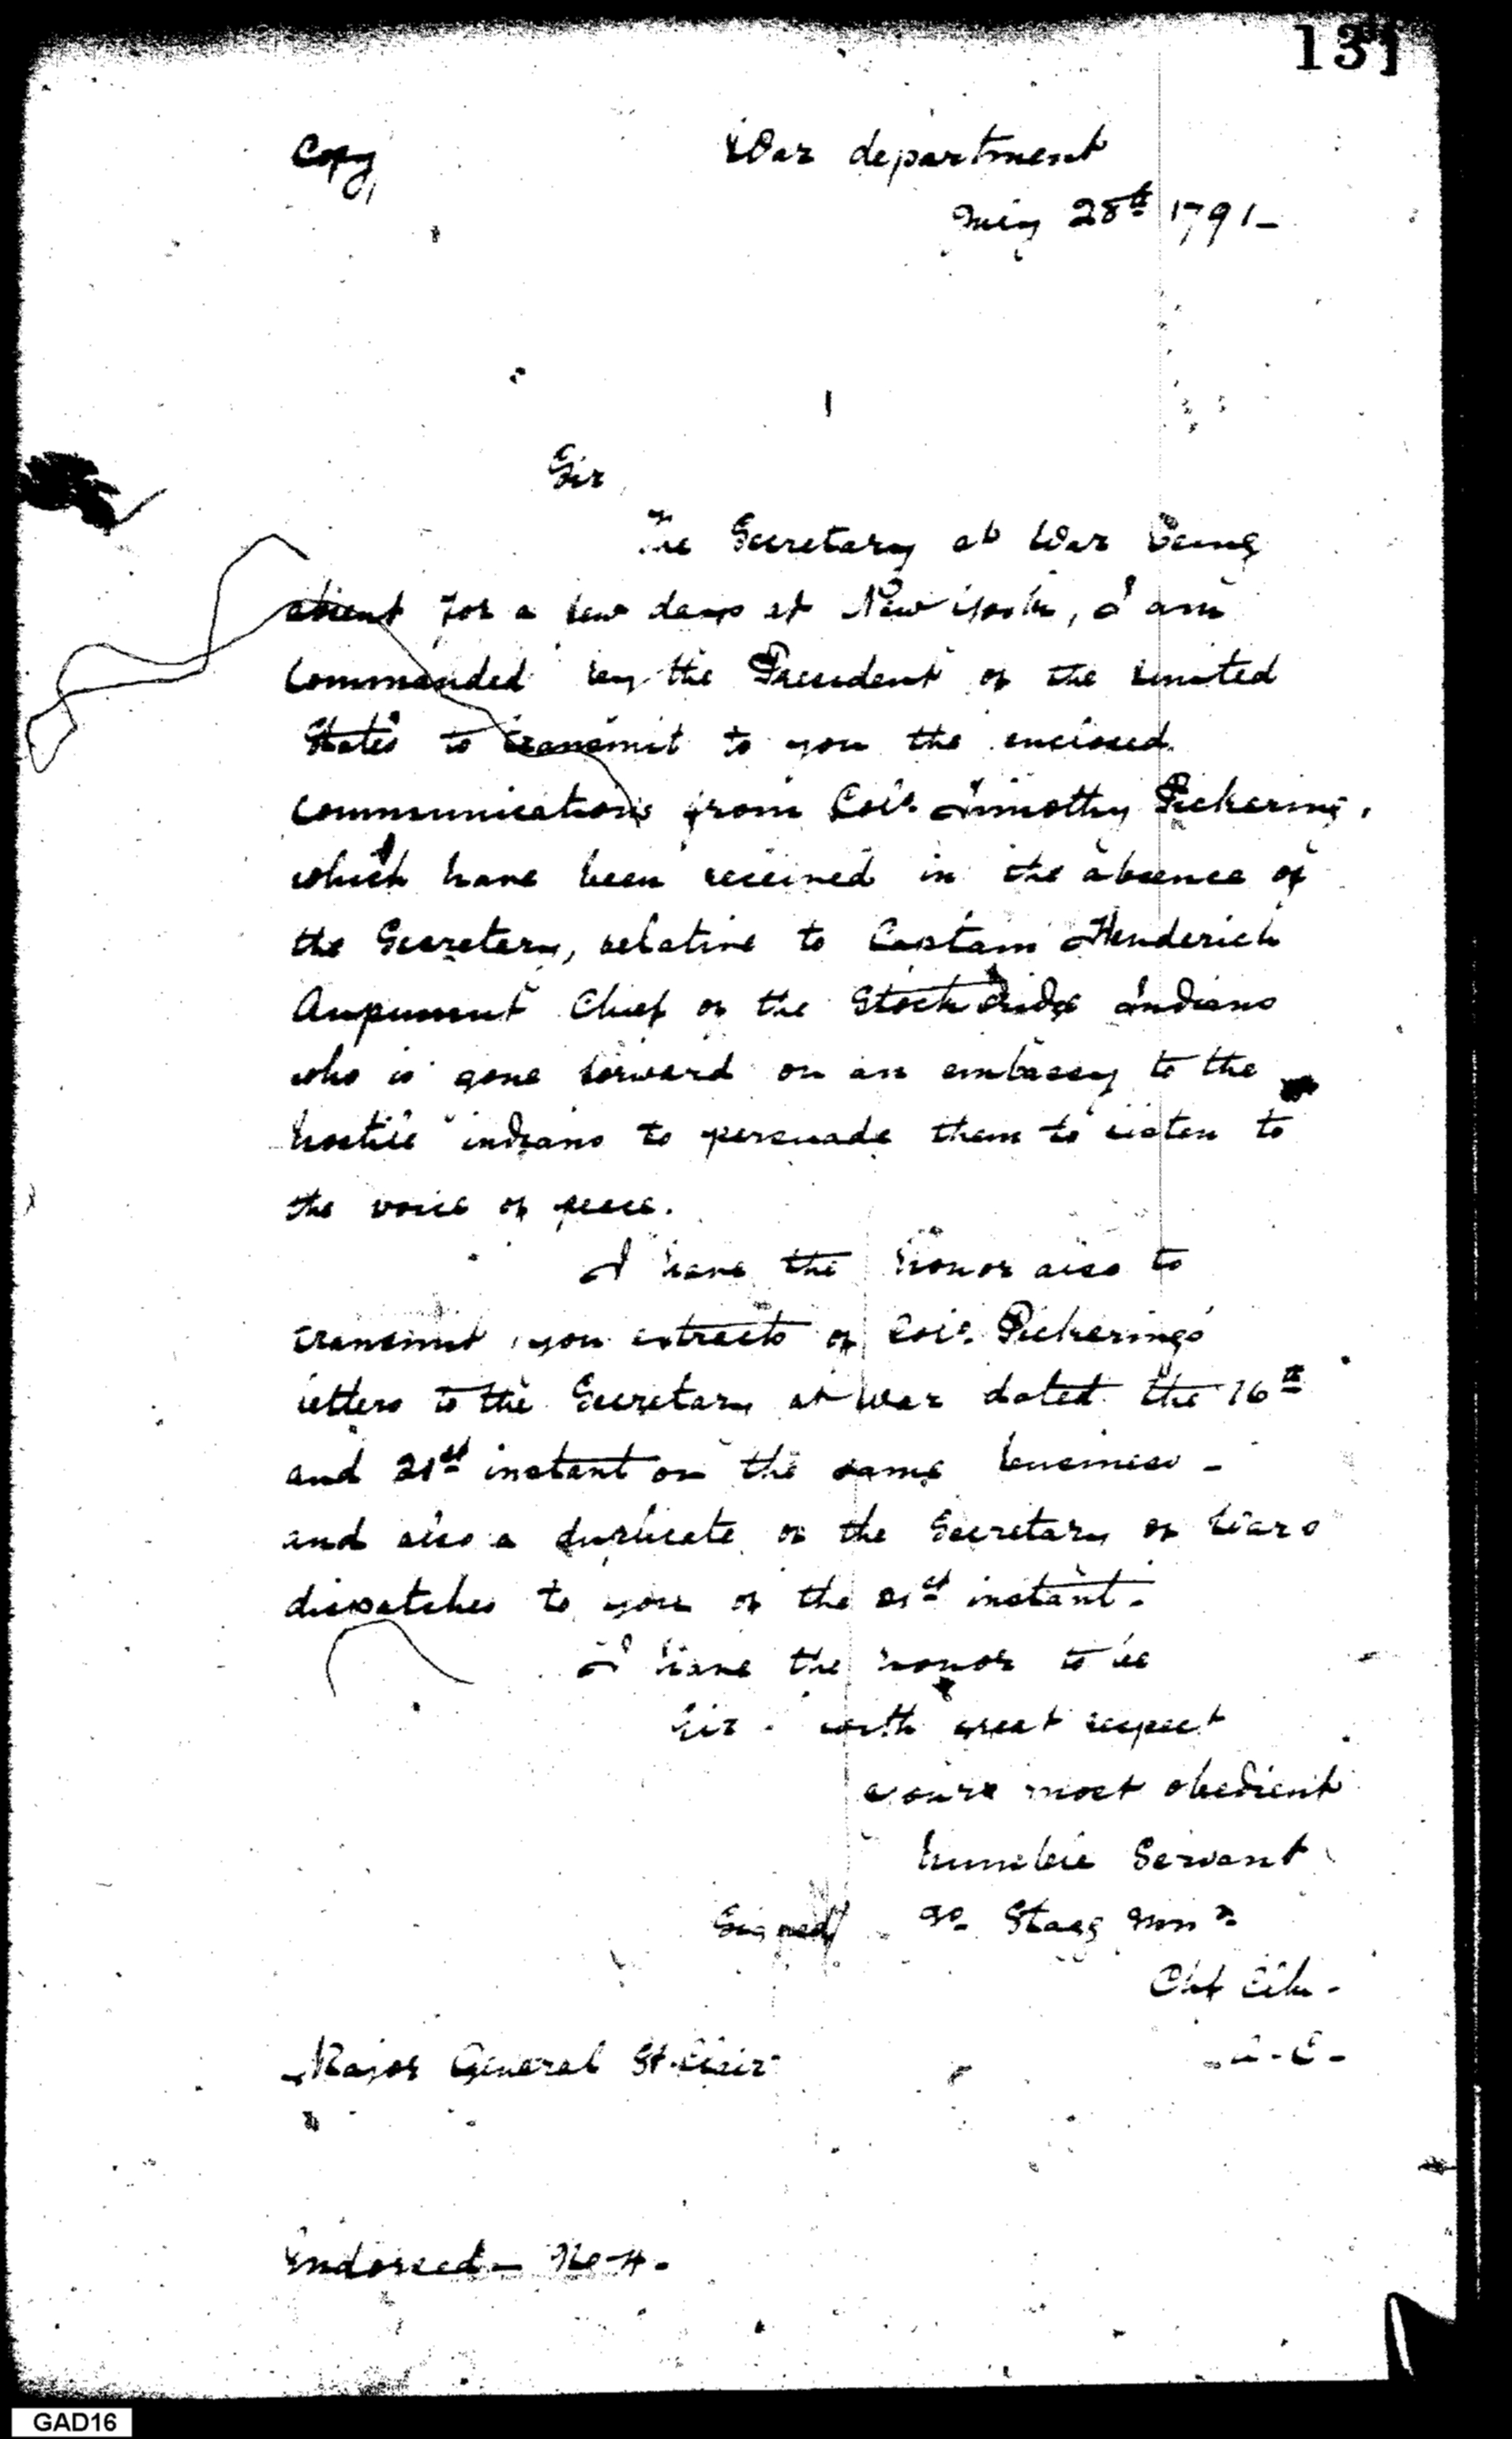 131
Copy
War department
July 28th 1791-
Sir,
The Secretary at War being
absent for a few days at New York, I am
commanded by the President of the United
States to transmit to you the enclosed
communications from Colo. Timothy Pickering,
which have been received in the absence of
the Secretary, relative to Captain Henderick
Aupumut Chief of the Stockbridge Indians
who is gone forward on an embassy to the
hostile indians to persuade them to listen to
the voice of peace.
I have the honor also to
transmit you extracts of Colo. Pickerings
letters to the Secretary at War dated the 16th
and 21st instant on the same business -
and also a duplicate of the Secretary of Wars
dispatches to you of the 21st instant.
I have the honor to be
Sir. with great respect
Your most obedient
humble Servant
Signed Jno. Stagg Junr.
Chf Clk.
Major General St. Clair
Endorsed - No 4.
GAD16